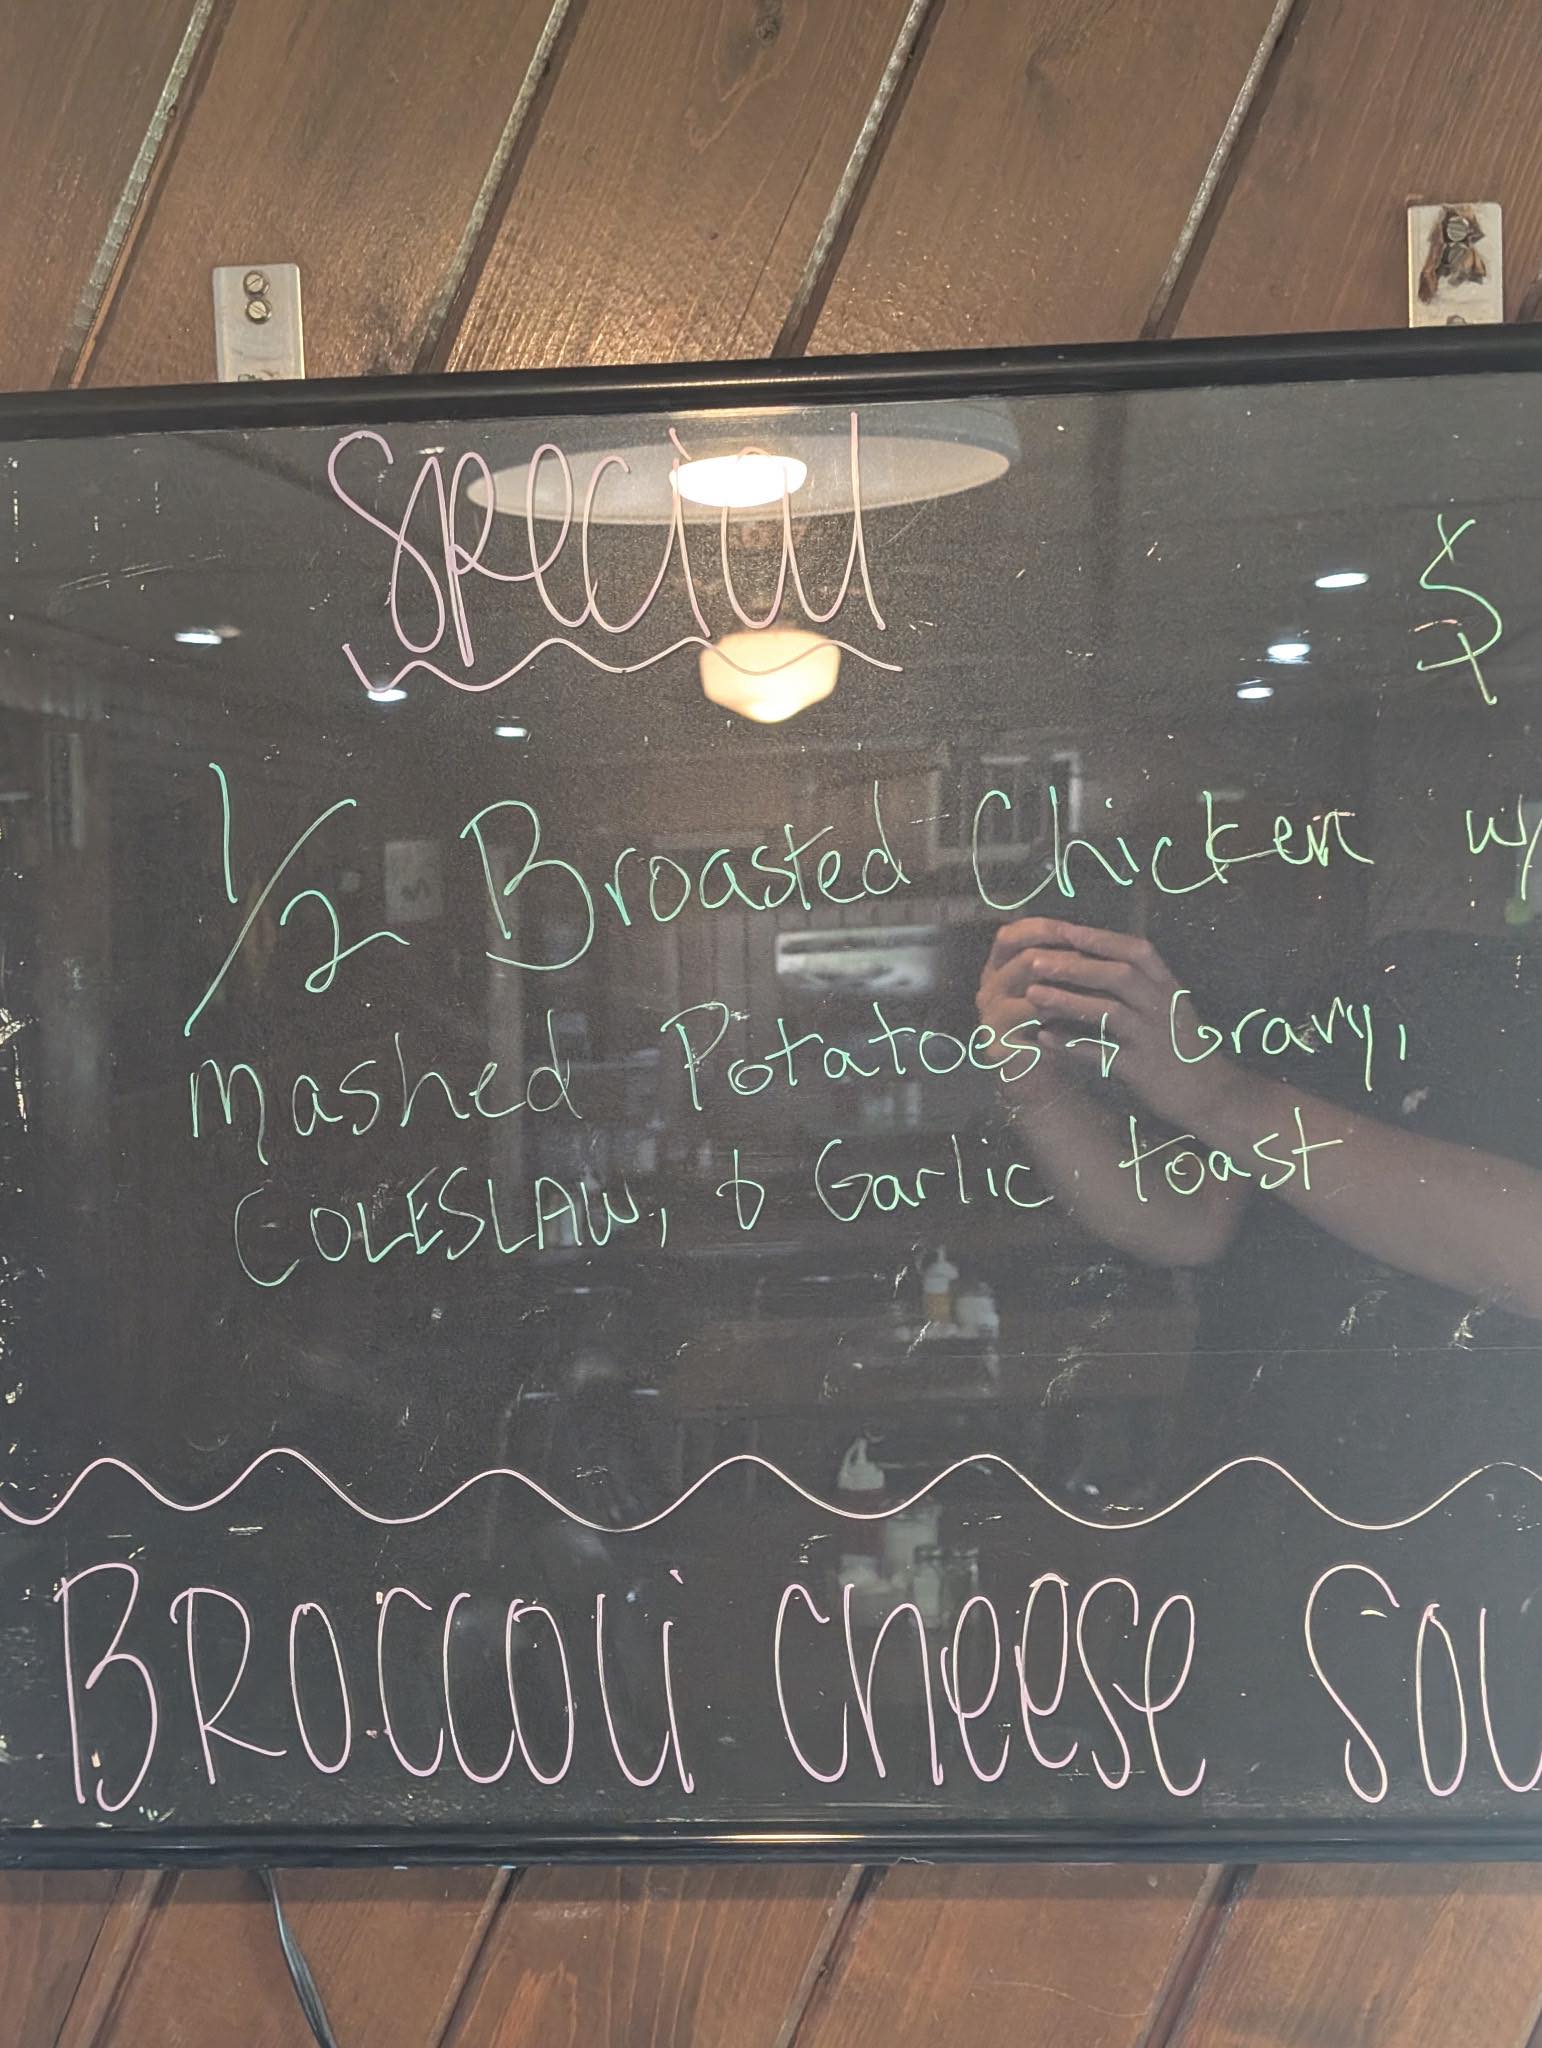 Special
$
1/2 Broasted Chicken w/
Mashed Potatoes & Gravy,
COLESLAW, & Garlic toast
BROCCOLI CHEESE SOU